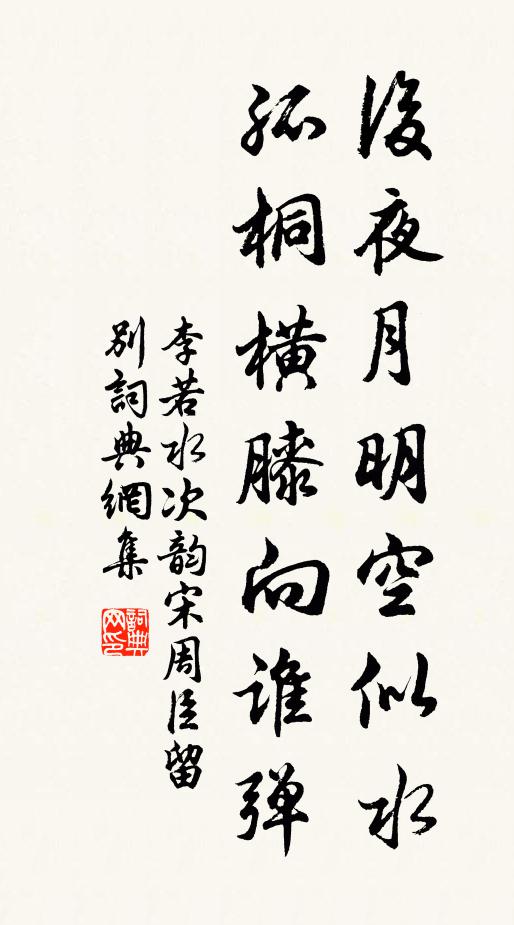 後夜月明空似水
孤桐横膝向谁弹
李若水次韵宋周臣留
别詞典網集
詞典網印